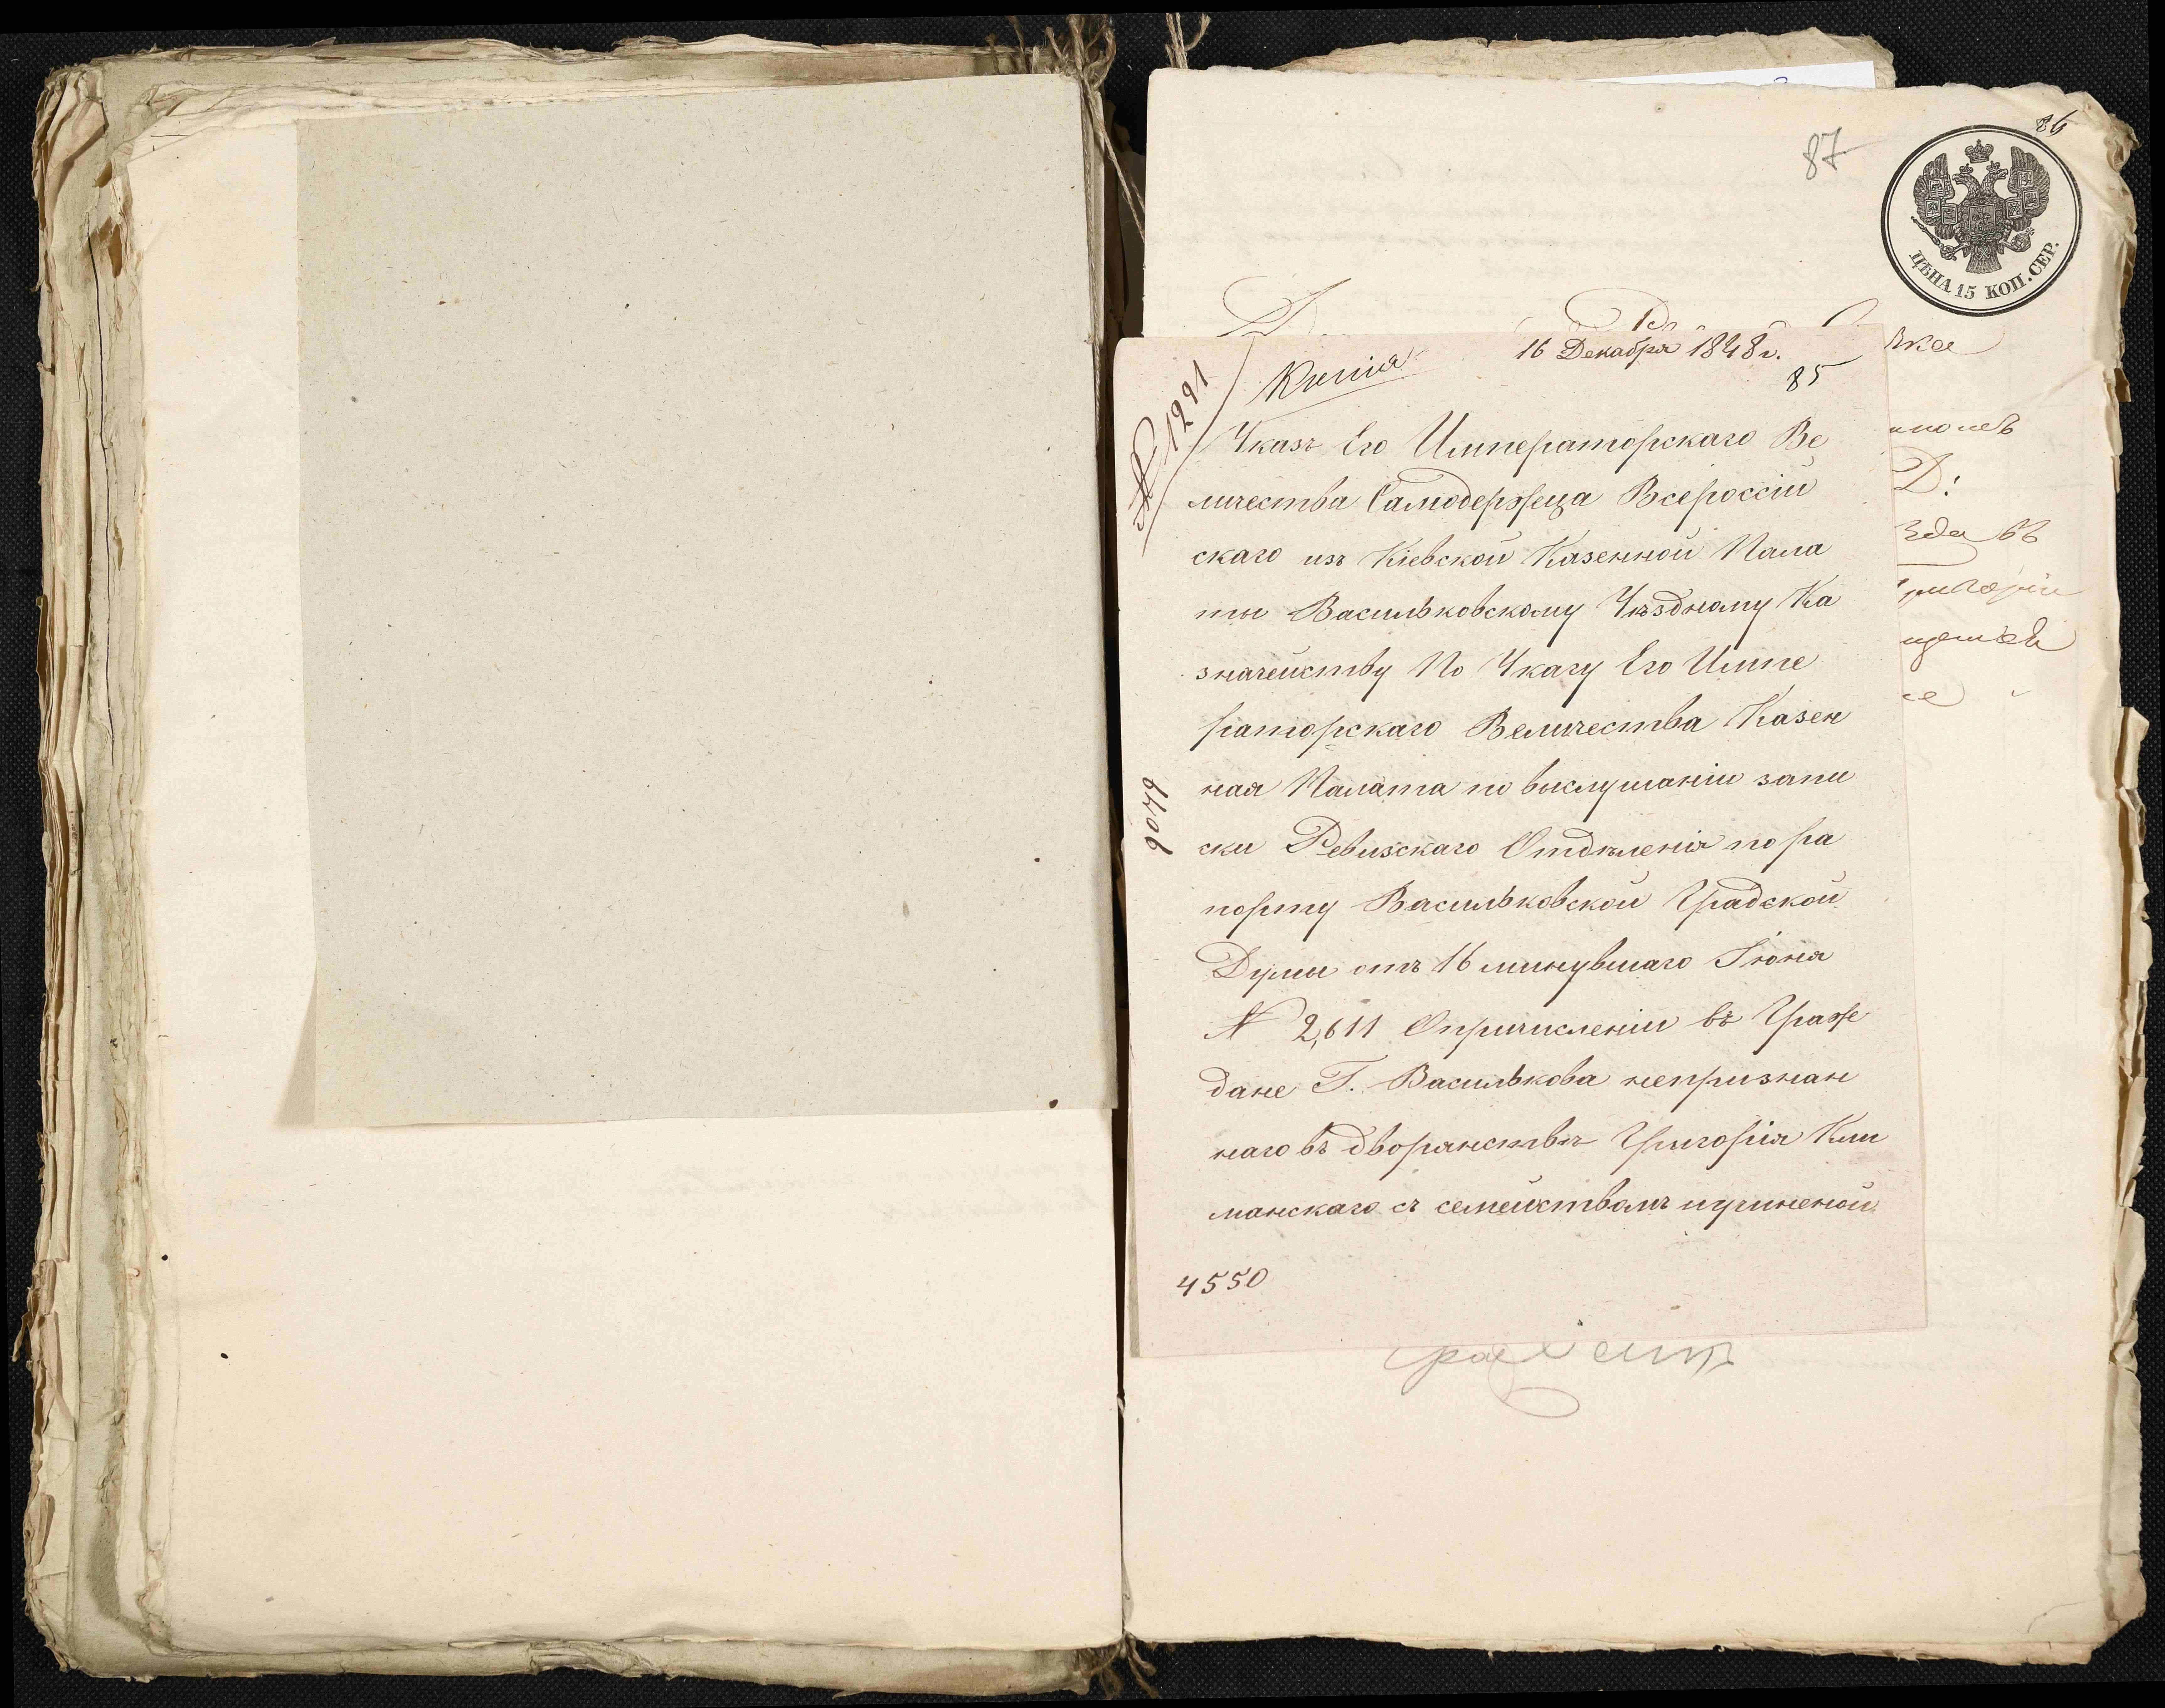 86
87
ЦѢНА 15 КОП. СЕР.
16 Декабря 1848 г.
№ 1291
Копія
85
Указъ Его Императорскаго Ве
личества Самодержца Всероссій
скаго изъ Кіевской Казенной Пала
ты Васильковскому Уѣздному Ка
значейству По Указу Его Импе
раторскаго Величества Казен
ная Палата по выслушаніи запи
ски Ревизскаго Отдѣленія по ра
порту Васильковской Градской
Думы отъ 16 минувшаго Іюня
№ 2,611 Опричисленіи въ Граж
дане Г. Василькова непризнан
наго въ дворянствѣ Григорія Кли
манскаго съ семействомъ иучиненой
9049
4550